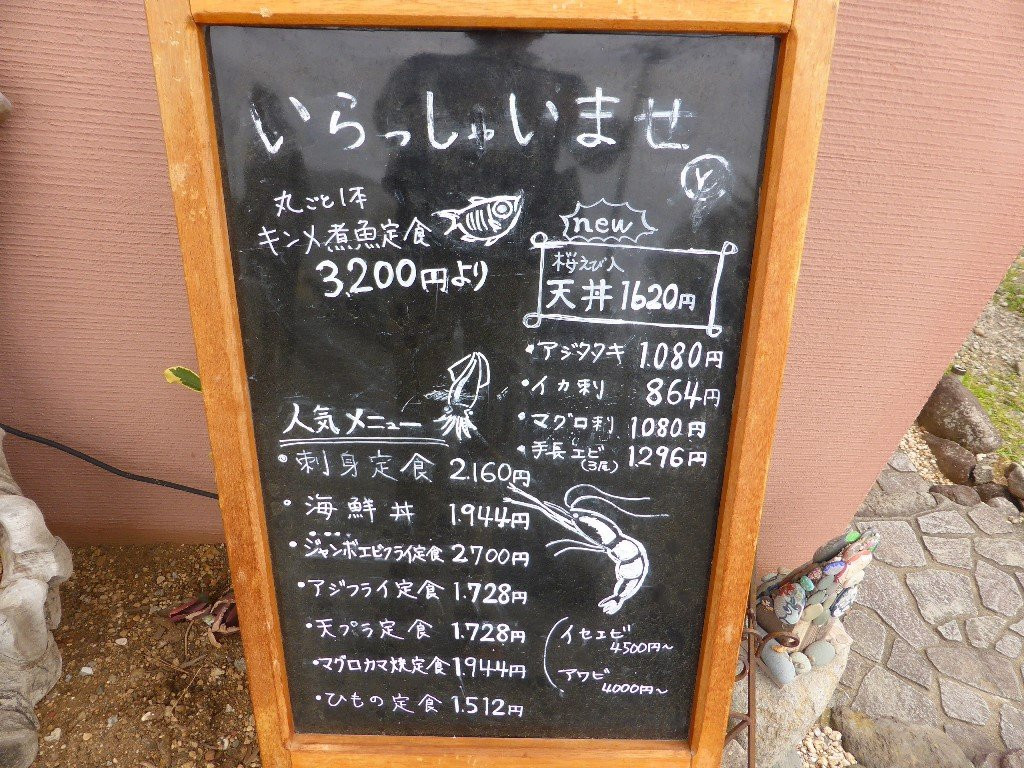 いらっしゃいませ
丸ごと1本
キンメ煮魚定食
3,200円より
new
桜えび入
天丼 1620円
・アジタタキ 1.080円
・イカ刺 864円
・マグロ刺 1080円
・手長エビ(3尾) 1.296円
人気メニュー
・刺身定食 2.160円
・海鮮丼 1.944円
・ジャンボエビフライ定食 2700円
・アジフライ定食 1.728円
・天プラ定食 1.728円
・マグロカマ焼定食 1.944円
・ひもの定食 1.512円
イセエビ
4500円~
アワビ
4000円~